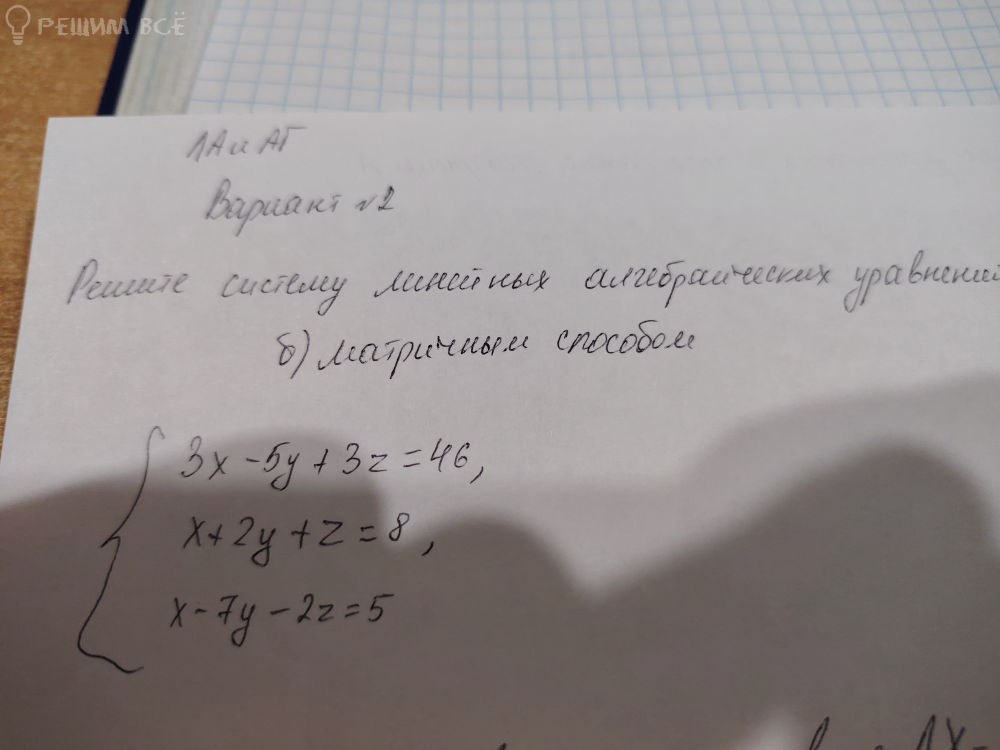 РЕШИМ ВСЁ
ЛА и АГ
Вариант №2
Решите систему линейных алгебраических уравнений
б) матричным способом
3x - 5y + 3z = 46,
x + 2y + z = 8,
x - 7y - 2z = 5